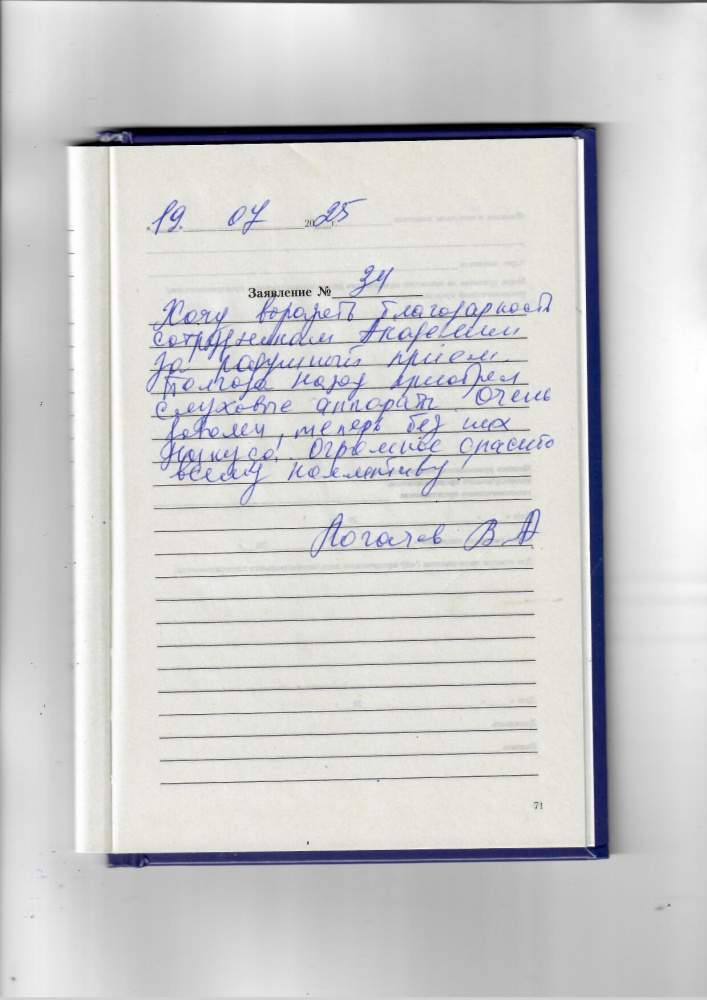 19. 07 2025 г.
Заявление № 34
Хочу выразить благодарность
сотрудникам Академии
за радушный прием.
Полгода назад приобрел
слуховые аппараты. Очень
доволен, теперь без них
никуда! Огромное спасибо
всему коллективу
В А
71